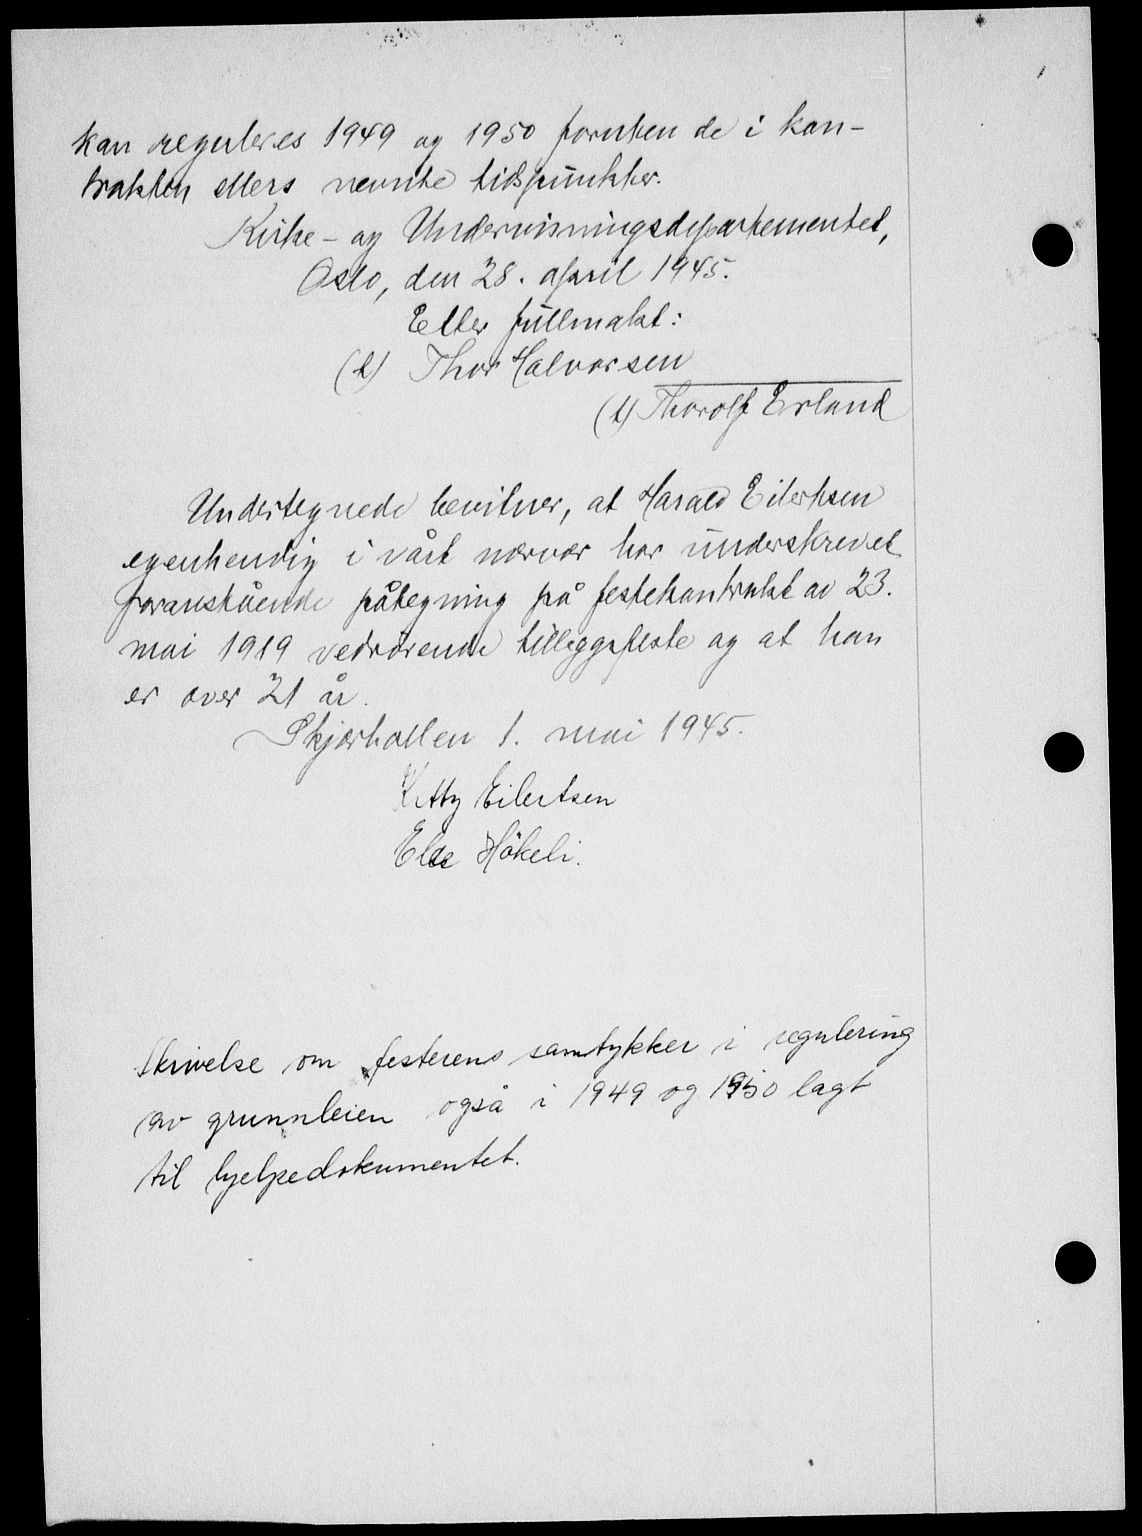 kan reguleres 1949 og 1950 foruten de i kon-
trakten ellers nevnte tidspunkter.
Kirke- og Undervisningsdepartementet,
Oslo, den 28. april 1945.
Etter fullmakt:
(t) Thor Halvorsen
(t) Thorolf Erland
Undertegnede bevitner, at Harald Eilertsen
egenhendig i vårt nærvær har underskrevet
foranstående påtegning på festekontrakt av 23.
mai 1919 vedrörende tilleggsfeste og at han
er over 21 år.
Skjærhallen 1. mai 1945.
Kitty Eilertsen
Else Hökeli.
Skrivelse om festerens samtykker i regulering
av grunnleien også i 1949 og 1950 lagt
til hjelpedokumentet.